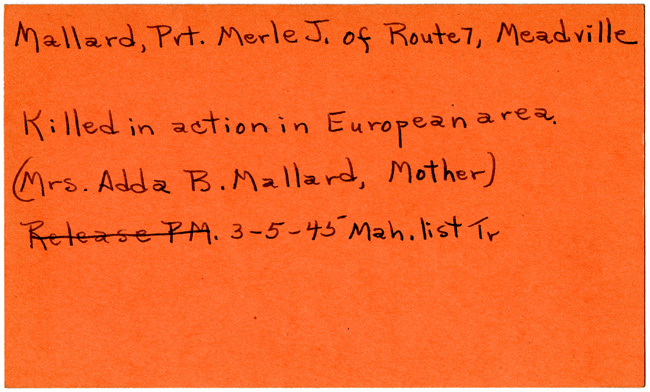 Mallard, Pvt. Merle J. of Route 7, Meadville
Killed in action in European area.
(Mrs. Adda B. Mallard, Mother)
Release PM. 3-5-45 Mah. list Tr